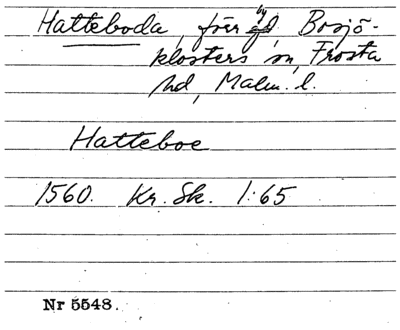 Hatteboda, förr by, Bosjö-
klosters sn, Frosta
hd, Malm. l.
Hatteboe
1560. Kr. Sk. 1:65
Nr 5548.